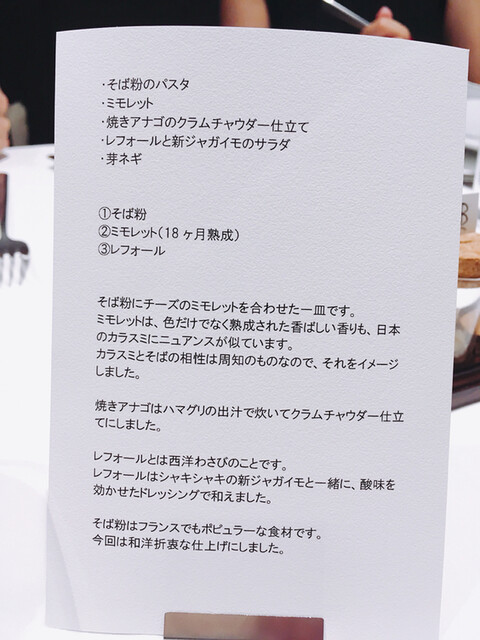 ・そば粉のパスタ
・ミモレット
・焼きアナゴのクラムチャウダー仕立て
・レフォールと新ジャガイモのサラダ
・芽ネギ
①そば粉
②ミモレット(18ヶ月熟成)
③レフォール
そば粉にチーズのミモレットを合わせた一皿です。
ミモレットは、色だけでなく熟成された香ばしい香りも、日本
のカラスミにニュアンスが似ています。
カラスミとそばの相性は周知のものなので、それをイメージ
しました。
焼きアナゴはハマグリの出汁で炊いてクラムチャウダー仕立
てにしました。
レフォールとは西洋わさびのことです。
レフォールはシャキシャキの新ジャガイモと一緒に、酸味を
効かせたドレッシングで和えました。
そば粉はフランスでもポピュラーな食材です。
今回は和洋折衷な仕上げにしました。